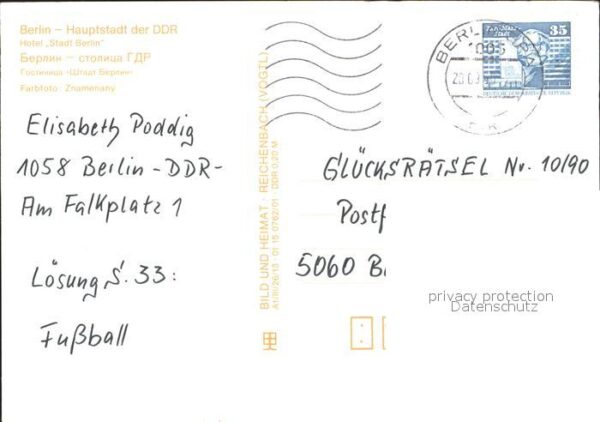 Berlin – Hauptstadt der DDR
Hotel „Stadt Berlin“
Берлин – столица ГДР
Гостиница «Штадт Берлин»
Farbfoto: Znamenany
Elisabeth Poddig
1058 Berlin -DDR-
Am Falkplatz 1
Lösung S. 33:
Fußball
BILD UND HEIMAT · REICHENBACH (VOGTL)
A1/III/26/13 · 01 15 0762/01 · DDR 0,20 M
35
GLÜCKSRÄTSEL Nr. 10/90
Postf
5060 B
privacy protection
Datenschutz